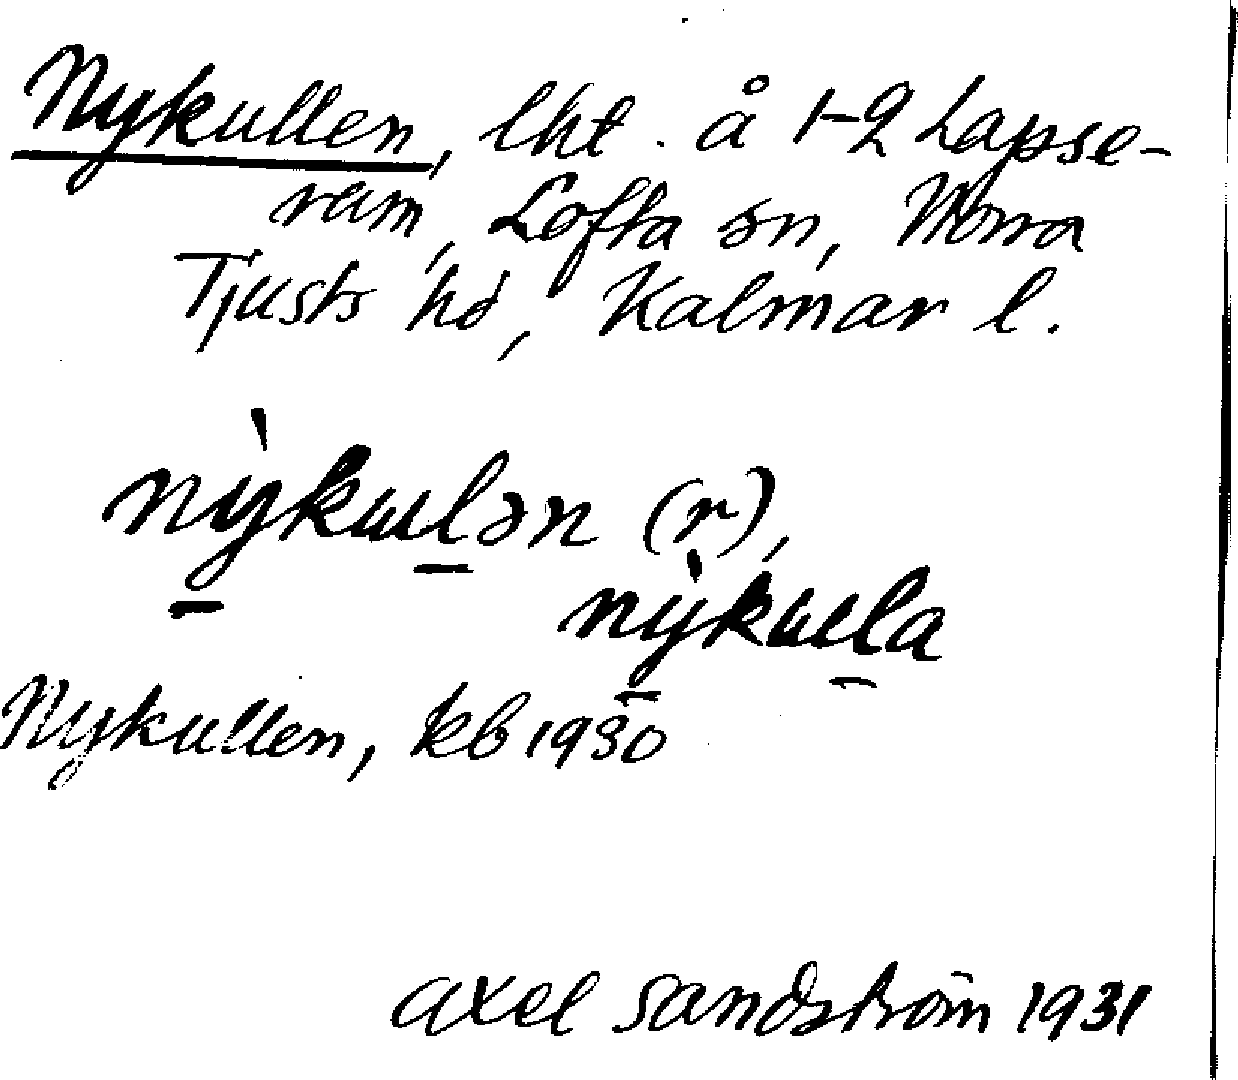 Nykullen, lht. å 1-2 Lapse-
ram, Lofta sn, Norra
Tjusts hd, Kalmar l.
nỳkulən (r),
nỳkula
Nykullen, kb 1930
Axel Sandström 1931